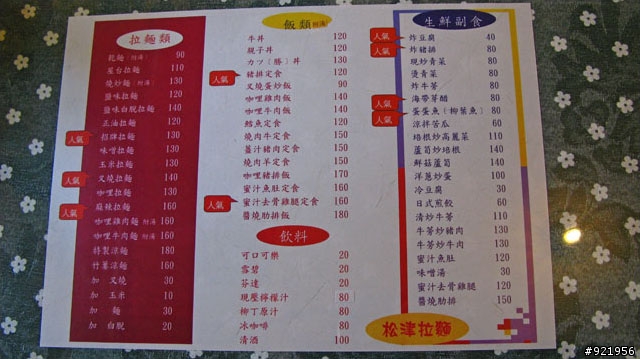 拉麵類
乾麵(附湯) 90
屋台拉麵 110
燒炒麵(附湯) 130
鹽味拉麵 120
鹽味白脫拉麵 140
正油拉麵 120
人氣 招牌拉麵 130
味噌拉麵 130
玉米拉麵 130
人氣 叉燒拉麵 140
咖哩拉麵 130
人氣 麻辣拉麵 160
咖哩雞肉麵 附湯 160
咖哩牛肉麵 附湯 160
特製涼麵 180
竹簍涼麵 160
加 叉燒 30
加 玉米 10
加 麵 30
加 白脫 20
飯類 附湯
牛丼 120
親子丼 120
カツ(勝)丼 130
人氣 豬排定食 120
叉燒蛋炒飯 90
咖哩雞肉飯 140
咖哩牛肉飯 140
鱈魚定食 120
燒肉牛定食 150
薑汁豬肉定食 150
燒肉羊定食 150
咖哩豬排飯 170
蜜汁魚肚定食 160
人氣 蜜汁去骨雞腿定食 160
醬燒肋排飯 180
飲料
可口可樂 20
雪碧 20
芬達 20
現壓檸檬汁 80
柳丁原汁 80
冰咖啡 80
清酒 100
生鮮副食
人氣 炸豆腐 40
人氣 炸豬排 80
現炒青菜 80
燙青菜 80
炸牛蒡 80
人氣 海帶芽醋 80
人氣 蛋蛋魚(柳葉魚) 80
涼拌苦瓜 60
培根炒高麗菜 110
蘆筍炒培根 140
鮮菇蘆筍 140
洋蔥炒蛋 100
冷豆腐 30
日式煎餃 60
清炒牛蒡 110
牛蒡炒豬肉 130
牛蒡炒牛肉 130
蜜汁魚肚 120
味噌湯 30
蜜汁去骨雞腿 120
醬燒肋排 150
松津拉麵
#921956